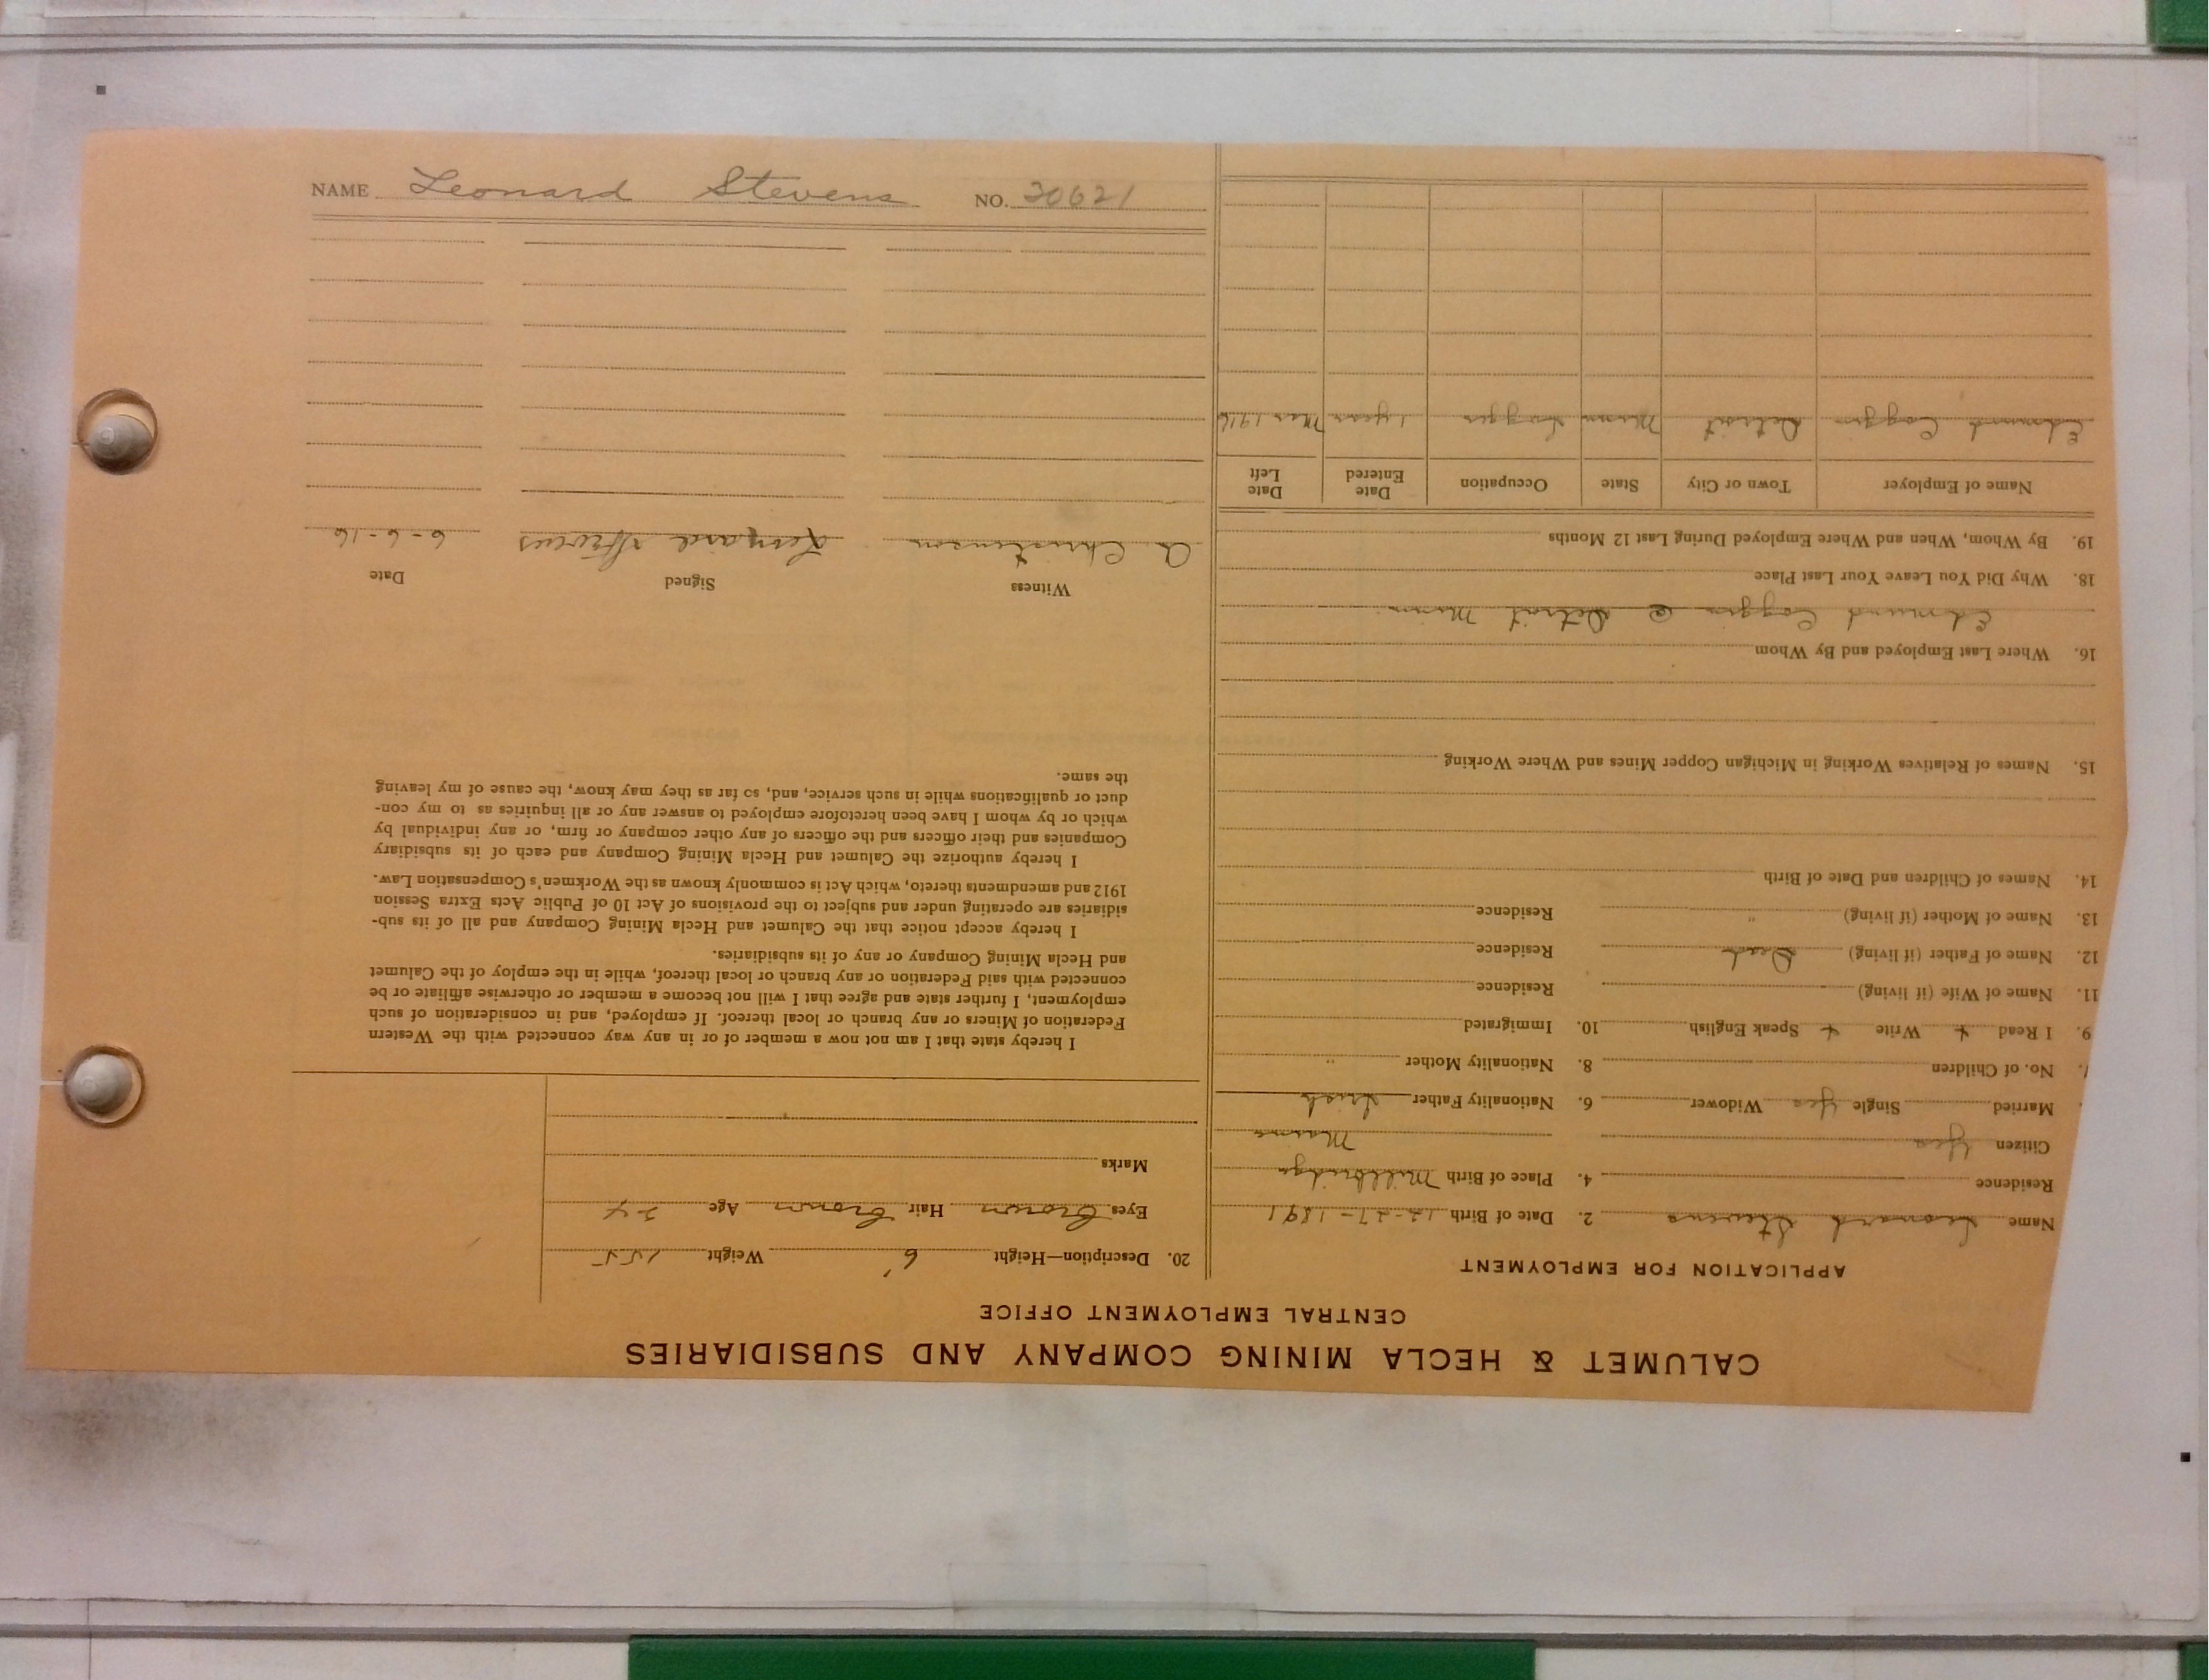 NAME Leonard Stevens NO. 30621
CALUMET & HECLA MINING COMPANY AND SUBSIDIARIES
CENTRAL EMPLOYMENT OFFICE
APPLICATION FOR EMPLOYMENT
Name Leonard Stevens 2. Date of Birth 12-27-1891
Residence 4. Place of Birth Millbridge
Citizen Yes Maine
Married Single Yes Widower 6. Nationality Father Irish
No. of Children 8. Nationality Mother "
9. I Read + Write + Speak English 10. Immigrated
11. Name of Wife (if living) Residence
12. Name of Father (if living) Dead Residence
13. Name of Mother (if living) " Residence
14. Names of Children and Date of Birth
15. Names of Relatives Working in Michigan Copper Mines and Where Working
16. Where Last Employed and By Whom
Edmund @ Detroit
18. Why Did You Leave Your Last Place
19. By Whom, When and Where Employed During Last 12 Months
Name of Employer Town or City State Occupation Date Entered Date Left
Edmund Detroit 1 year 1916
20. Description—Height 6' Weight 155
Eyes Brown Hair Brown Age 24
Marks
I hereby state that I am not now a member of or in any way connected with the Western
Federation of Miners or any branch or local thereof. If employed, and in consideration of such
employment, I further state and agree that I will not become a member or otherwise affiliate or be
connected with said Federation or any branch or local thereof, while in the employ of the Calumet
and Hecla Mining Company or any of its subsidiaries.
I hereby accept notice that the Calumet and Hecla Mining Company and all of its sub-
sidiaries are operating under and subject to the provisions of Act 10 of Public Acts Extra Session
1912 and amendments thereto, which Act is commonly known as the Workmen's Compensation Law.
I hereby authorize the Calumet and Hecla Mining Company and each of its subsidiary
Companies and their officers and the officers of any other company or firm, or any individual by
which or by whom I have been heretofore employed to answer any or all inquiries as to my con-
duct or qualifications while in such service, and, so far as they may know, the cause of my leaving
the same.
Witness Signed Date
A Christenson Stevens 6-6-16